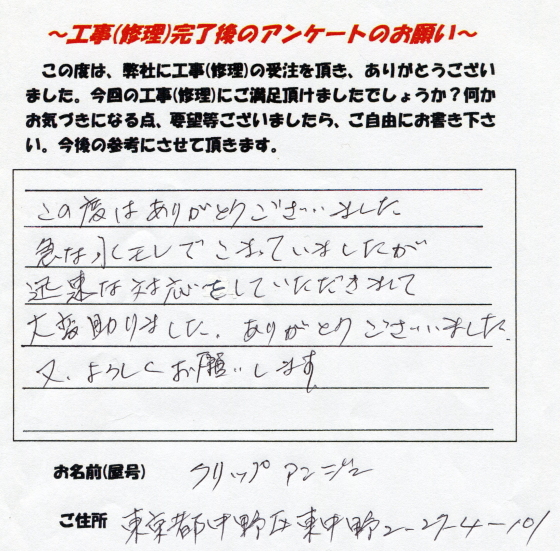 ～工事(修理)完了後のアンケートのお願い～
この度は、弊社に工事(修理)の受注を頂き、ありがとうござい
ました。今回の工事(修理)にご満足頂けましたでしょうか？何か
お気づきになる点、要望等ございましたら、ご自由にお書き下さ
い。今後の参考にさせて頂きます。
この度はありがとうございました
急な水モレでこまっていましたが
迅速な対応をしていただきまして
大変助りました。ありがとうございました。
又、よろしくお願いします。
お名前(屋号) クリップアンジュ
ご住所 東京都中野区東中野2-27-4-101